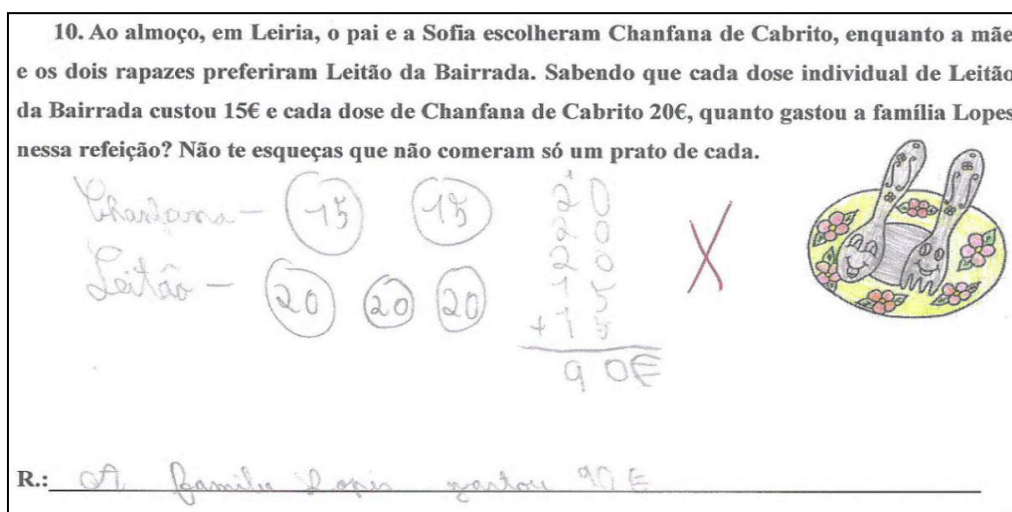 10. Ao almoço, em Leiria, o pai e a Sofia escolheram Chanfana de Cabrito, enquanto a mãe
e os dois rapazes preferiram Leitão da Bairrada. Sabendo que cada dose individual de Leitão
da Bairrada custou 15€ e cada dose de Chanfana de Cabrito 20€, quanto gastou a família Lopes
nessa refeição? Não te esqueças que não comeram só um prato de cada.
Chanfana – 15 15
Leitão – 20 20 20
1
20
20
20
15
+ 15
90€
R.: A família Lopes gastou 90€